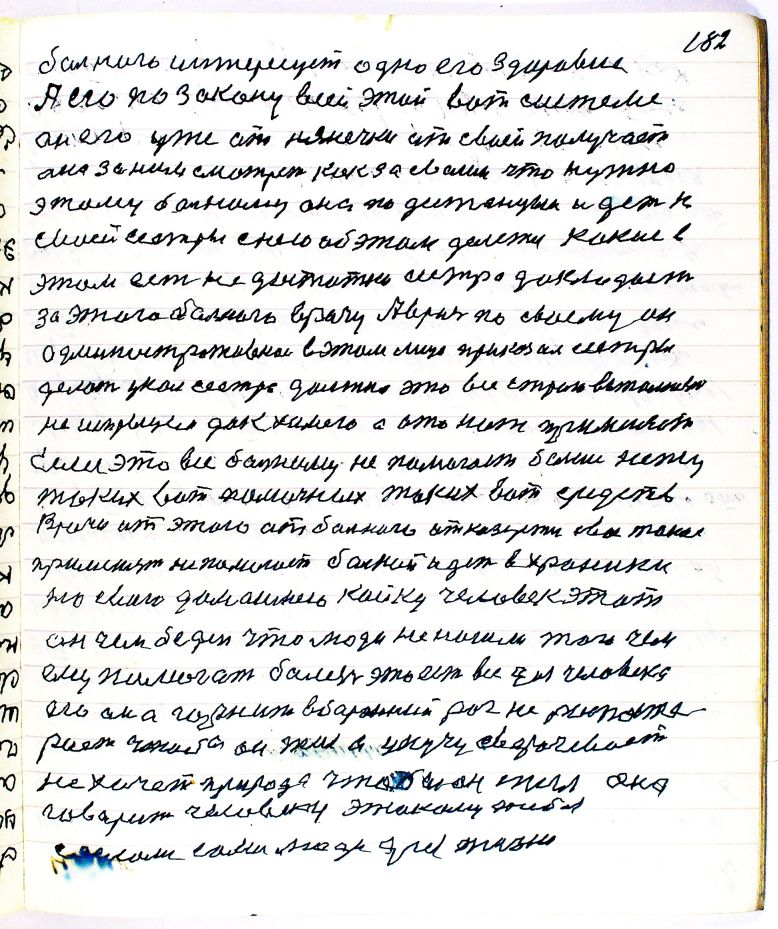 182
болного интересует одно его здоровие
А его по закону всей этой вот системе
он его уже от нянечки от своей получает
она за ним смотрит как за своим что нужно
этому болному она по дистанции идет к
своей сестры с нею об этом делети какие в
этом ест не достатки сестра докладует
за этого болного врачу А врач по своему он
административное в этом лицо приказал сестры
делат укол сестра должна это все строн выполнит
не
Если это все болному не помогает более нету
таких вот помочних таких вот средств.
Врачи от этого от болного
применят не помогает болной идет в хроники
на свого домашнего койку человек этот
он чем беден что люди не нашли того чем
ему помогат болезн это ест все для человека
его она гарнит в бараний рог не
рает чтоба он жил а у кучу сворочевает
не хочет природа чтобы он жил она
говорит человеку этакому
сами люди для жизни